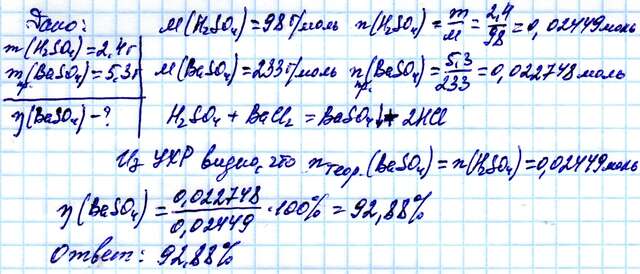 Дано:
m(H₂SO₄)=2,4г
mпр.(BaSO₄)=5,3г
η(BaSO₄)-?
M(H₂SO₄)=98г/моль n(H₂SO₄)=m/M=2,4/98=0,02449моль
M(BaSO₄)=233г/моль nпр.(BaSO₄)=5,3/233=0,022748моль
H₂SO₄+BaCl₂=BaSO₄↓+2HCl
Из УХР видно, что nтеор.(BaSO₄)=n(H₂SO₄)=0,02449моль
η(BaSO₄)=0,022748/0,02449·100%=92,88%
Ответ: 92,88%